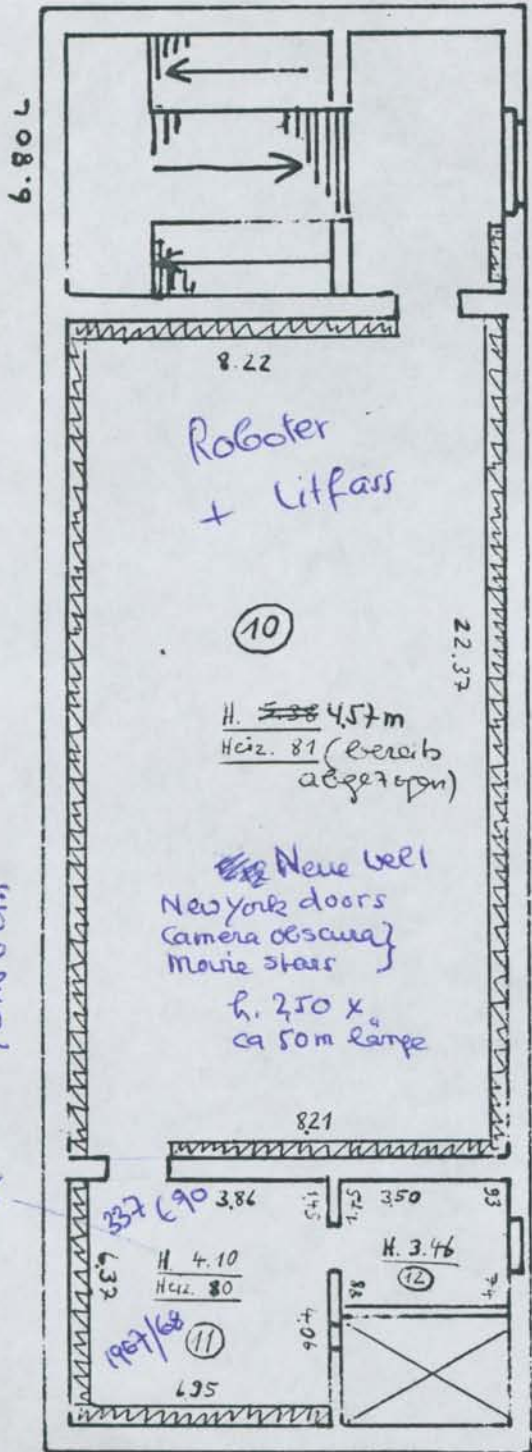 8.22
Roboter
+ Litfass
10
22.37
H. 5.38 4,57m
Heiz. 81 (bereits
abgezogen)
Neue Welt
New York doors
Camera obscura}
Movie stars }
h. 2,50 x
ca 50m länge
821
337 (90
3,86
1.45
3,50
93
6,37
H. 4.10
Heiz. 80
H. 3.46
12
88
74
1967/68
11
4,06